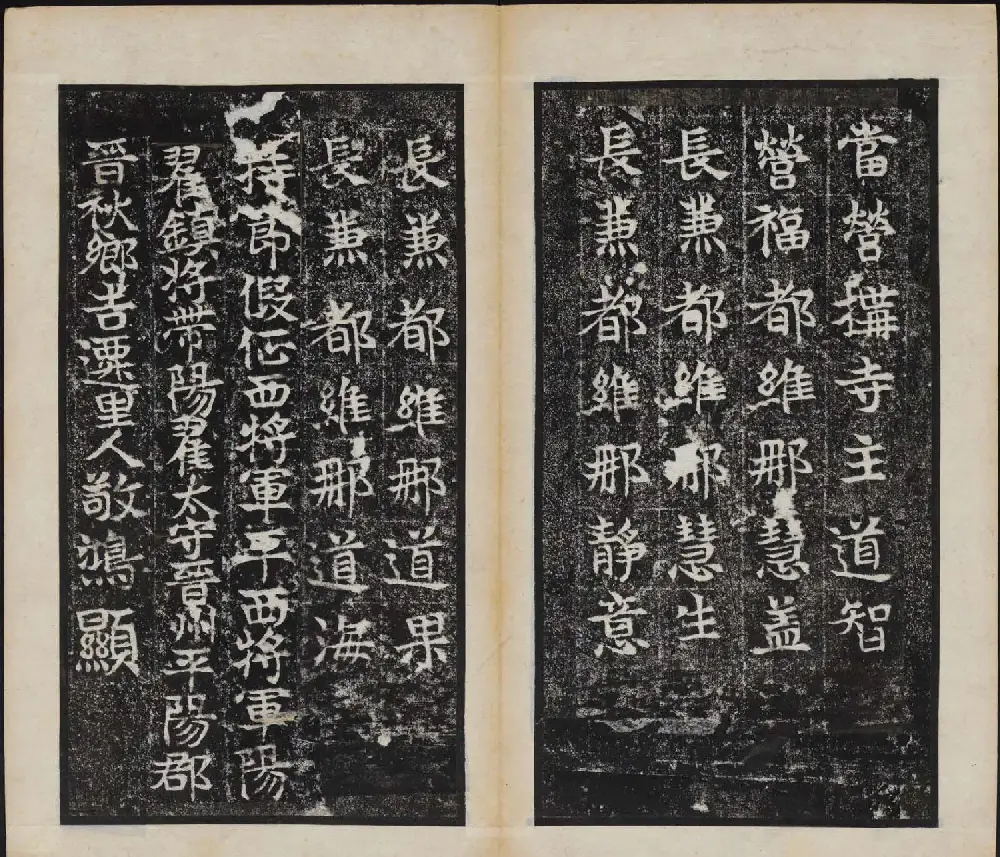 當營構寺主道智
營福都維那慧蓋
長兼都維那慧生
長兼都維那靜意
長兼都維那道果
長兼都維那道海
持節假征西將軍平西將軍陽
翟鎮將帶陽翟太守晉州平陽郡
晉秋鄉吉遷里人敬鴻顯